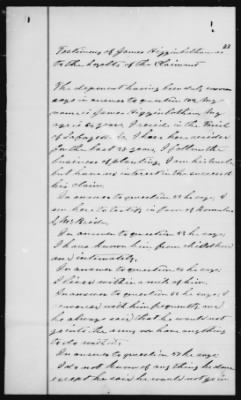 23
Testimony of James Higginbotham as
to the loyalty of the Claimant
The deponent having been duly sworn
says in answer to question 1st, My
name is James Higginbotham My
age is years, I reside in the Parish
of La. I have here resided
for the last 23 years, I follow the
business of planting, I am his uncle
but have no interest in the success of
his claim.
In answer to question he says, I
am here to testify in favor of
L. McBride.
In answer to question he says
I have known him from childhood
and intimately.
In answer to question he says
I lived within a mile of him.
In answer to question he says, I
conversed with him frequently and
he always said that he would not
go into the army nor have anything
to do with it.
In answer to question he says
I do not know of any thing he done
except he said he would not go in